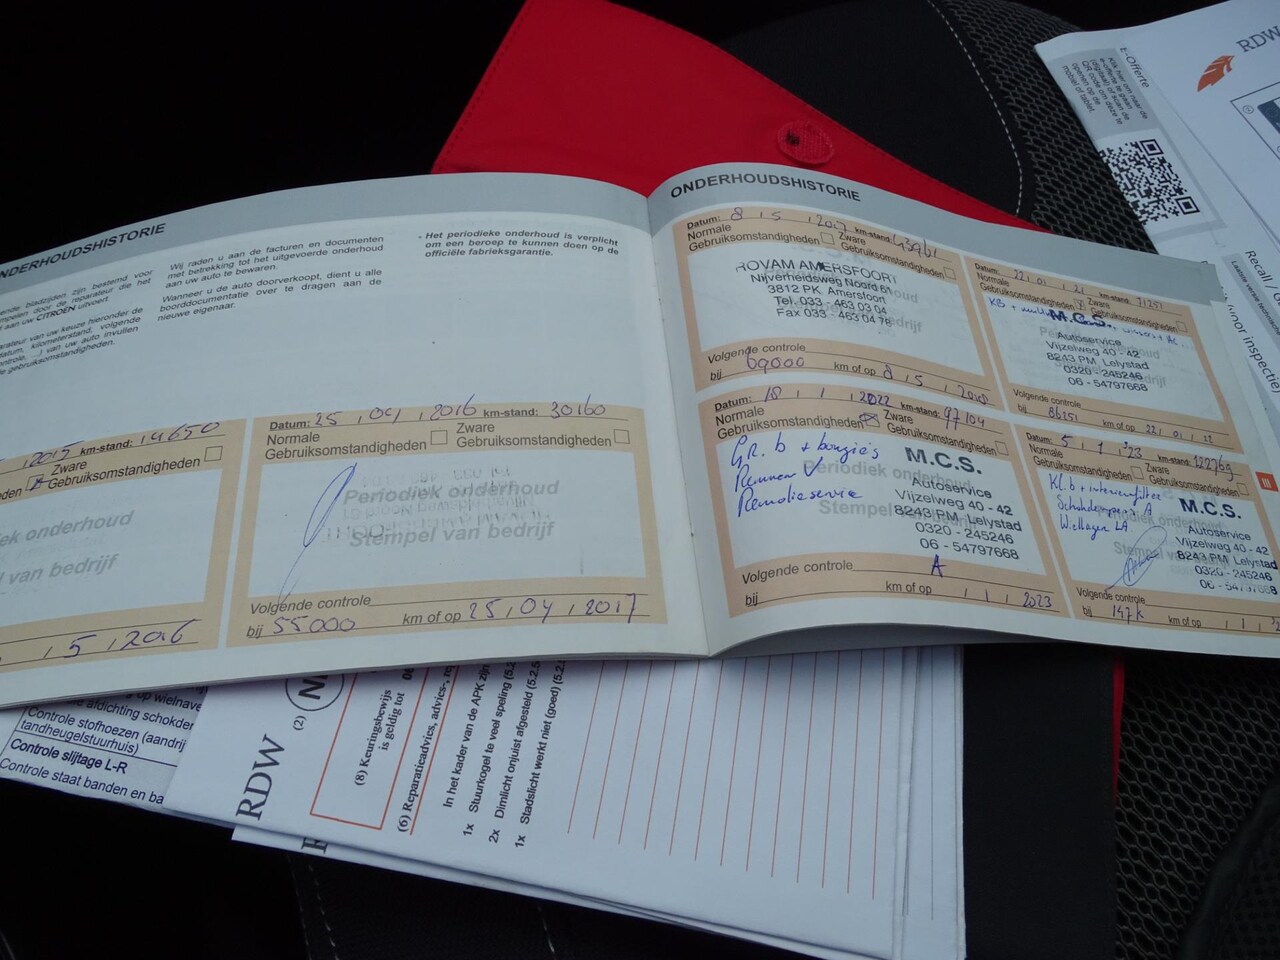 ONDERHOUDSHISTORIE
bladzijden zijn bestemd voor
door de reparateur die het
aan uw CITROËN uitvoert.
van uw keuze hieronder de
kilometerstand, volgende
van uw auto invullen
gebruiksomstandigheden.
Wij raden u aan de facturen en documenten
met betrekking tot het uitgevoerde onderhoud
aan uw auto te bewaren.
Wanneer u de auto doorverkoopt, dient u alle
boorddocumentatie over te dragen aan de
nieuwe eigenaar.
- Het periodieke onderhoud is verplicht
om een beroep te kunnen doen op de
officiële fabrieksgarantie.
2015 km-stand: 14650
Zware
Gebruiksomstandigheden
onderhoud
van bedrijf
5 2016
Datum: 25 04 2016 km-stand: 30160
Normale Zware
Gebruiksomstandigheden Gebruiksomstandigheden
Periodiek onderhoud
Stempel van bedrijf
Volgende controle
bij 55000 km of op 25 04 2017
ONDERHOUDSHISTORIE
Datum: 8 5 2017 km-stand:
Normale Zware
Gebruiksomstandigheden Gebruiksomstandigheden
ROVAM AMERSFOORT
Nijverheidsweg Noord 61
3812 PK Amersfoort
Tel. 033 - 463 03 04
Fax 033 - 463 04 76
Volgende controle
bij 69000 km of op 8 5 2018
Datum: 22 01 21 km-stand: 71251
Normale Zware
Gebruiksomstandigheden Gebruiksomstandigheden
M.C.S.
Autoservice
Vijzelweg 40 - 42
8243 PM Lelystad
0320 - 245246
06 - 54797668
Volgende controle
bij 86251 km of op 22 01 22
Datum: 18 1 2022 km-stand: 97104
Normale Zware
Gebruiksomstandigheden Gebruiksomstandigheden
GR. b + bougies
Remmen √
Remolieservice
Periodiek onderhoud
M.C.S.
Autoservice
Vijzelweg 40 - 42
8243 PM Lelystad
0320 - 245246
06 - 54797668
Volgende controle A
bij km of op 1 1 2023
Datum: 5 1 '23 km-stand: 122769
Normale Zware
Gebruiksomstandigheden Gebruiksomstandigheden
Kl. b + interieurfilter
Schokdempers A
Wiellager LA
M.C.S.
Autoservice
Vijzelweg 40 - 42
8243 PM Lelystad
0320 - 245246
06 - 54797668
Volgende controle
bij 147K km of op
III
RDW
E-Offerte
Klik hier om naar de
e-offerte te gaan
(digitaal) of scan de
QR code om deze te
openen op de
mobiel of tablet.
Recall /
voor inspectie
op wielnave
afdichting schokde
Controle stofhoezen (aandrij
tandheugelstuurhuis)
Controle slijtage L-R
Controle staat banden en ba
RDW
(2)
(8) Keuringsbewijs
is geldig tot
(6) Reparatieadvies, advies-, re
In het kader van de APK zijn
1x Stuurkogel te veel speling (5.2
2x Dimlicht onjuist afgesteld (5.2.5
1x Stadslicht werkt niet (goed) (5.2